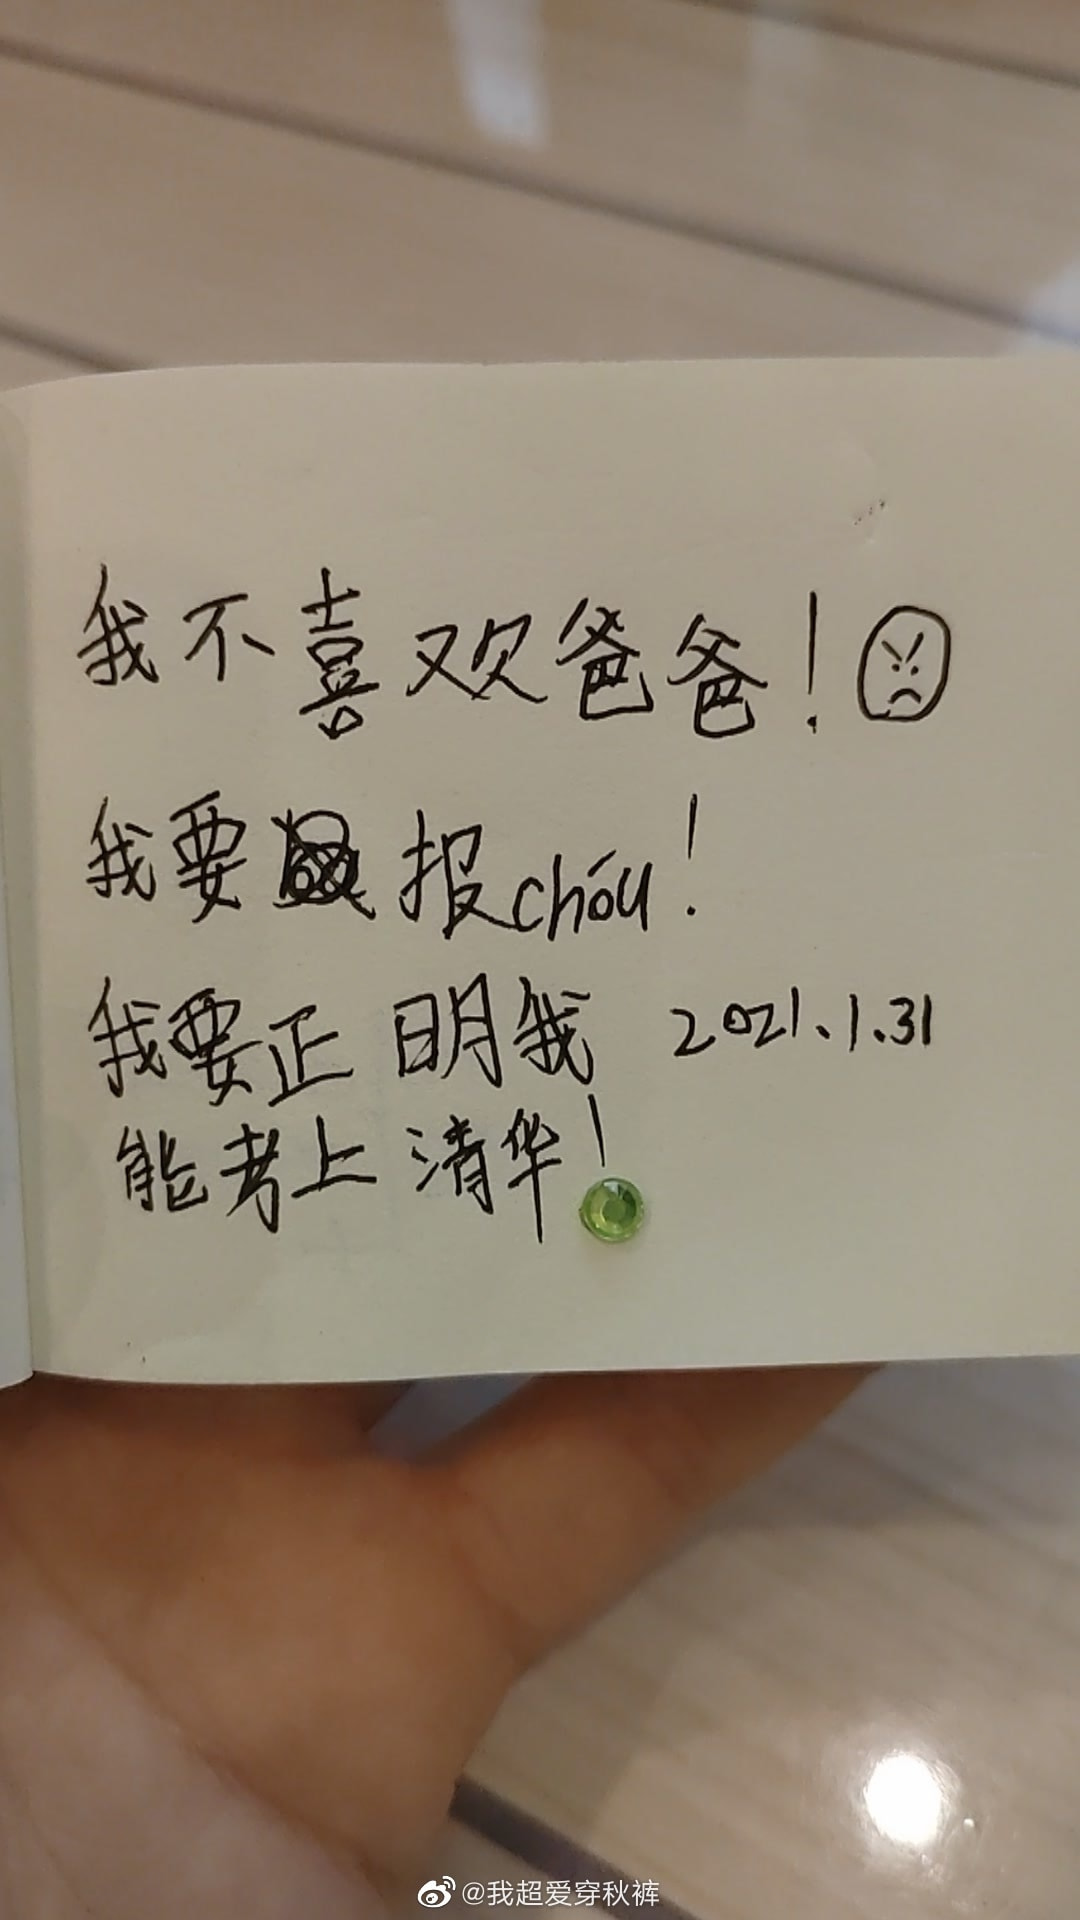 我不喜欢爸爸！
我要报chóu！
我要正明我 2021.1.31
能考上清华！
@我超爱穿秋裤